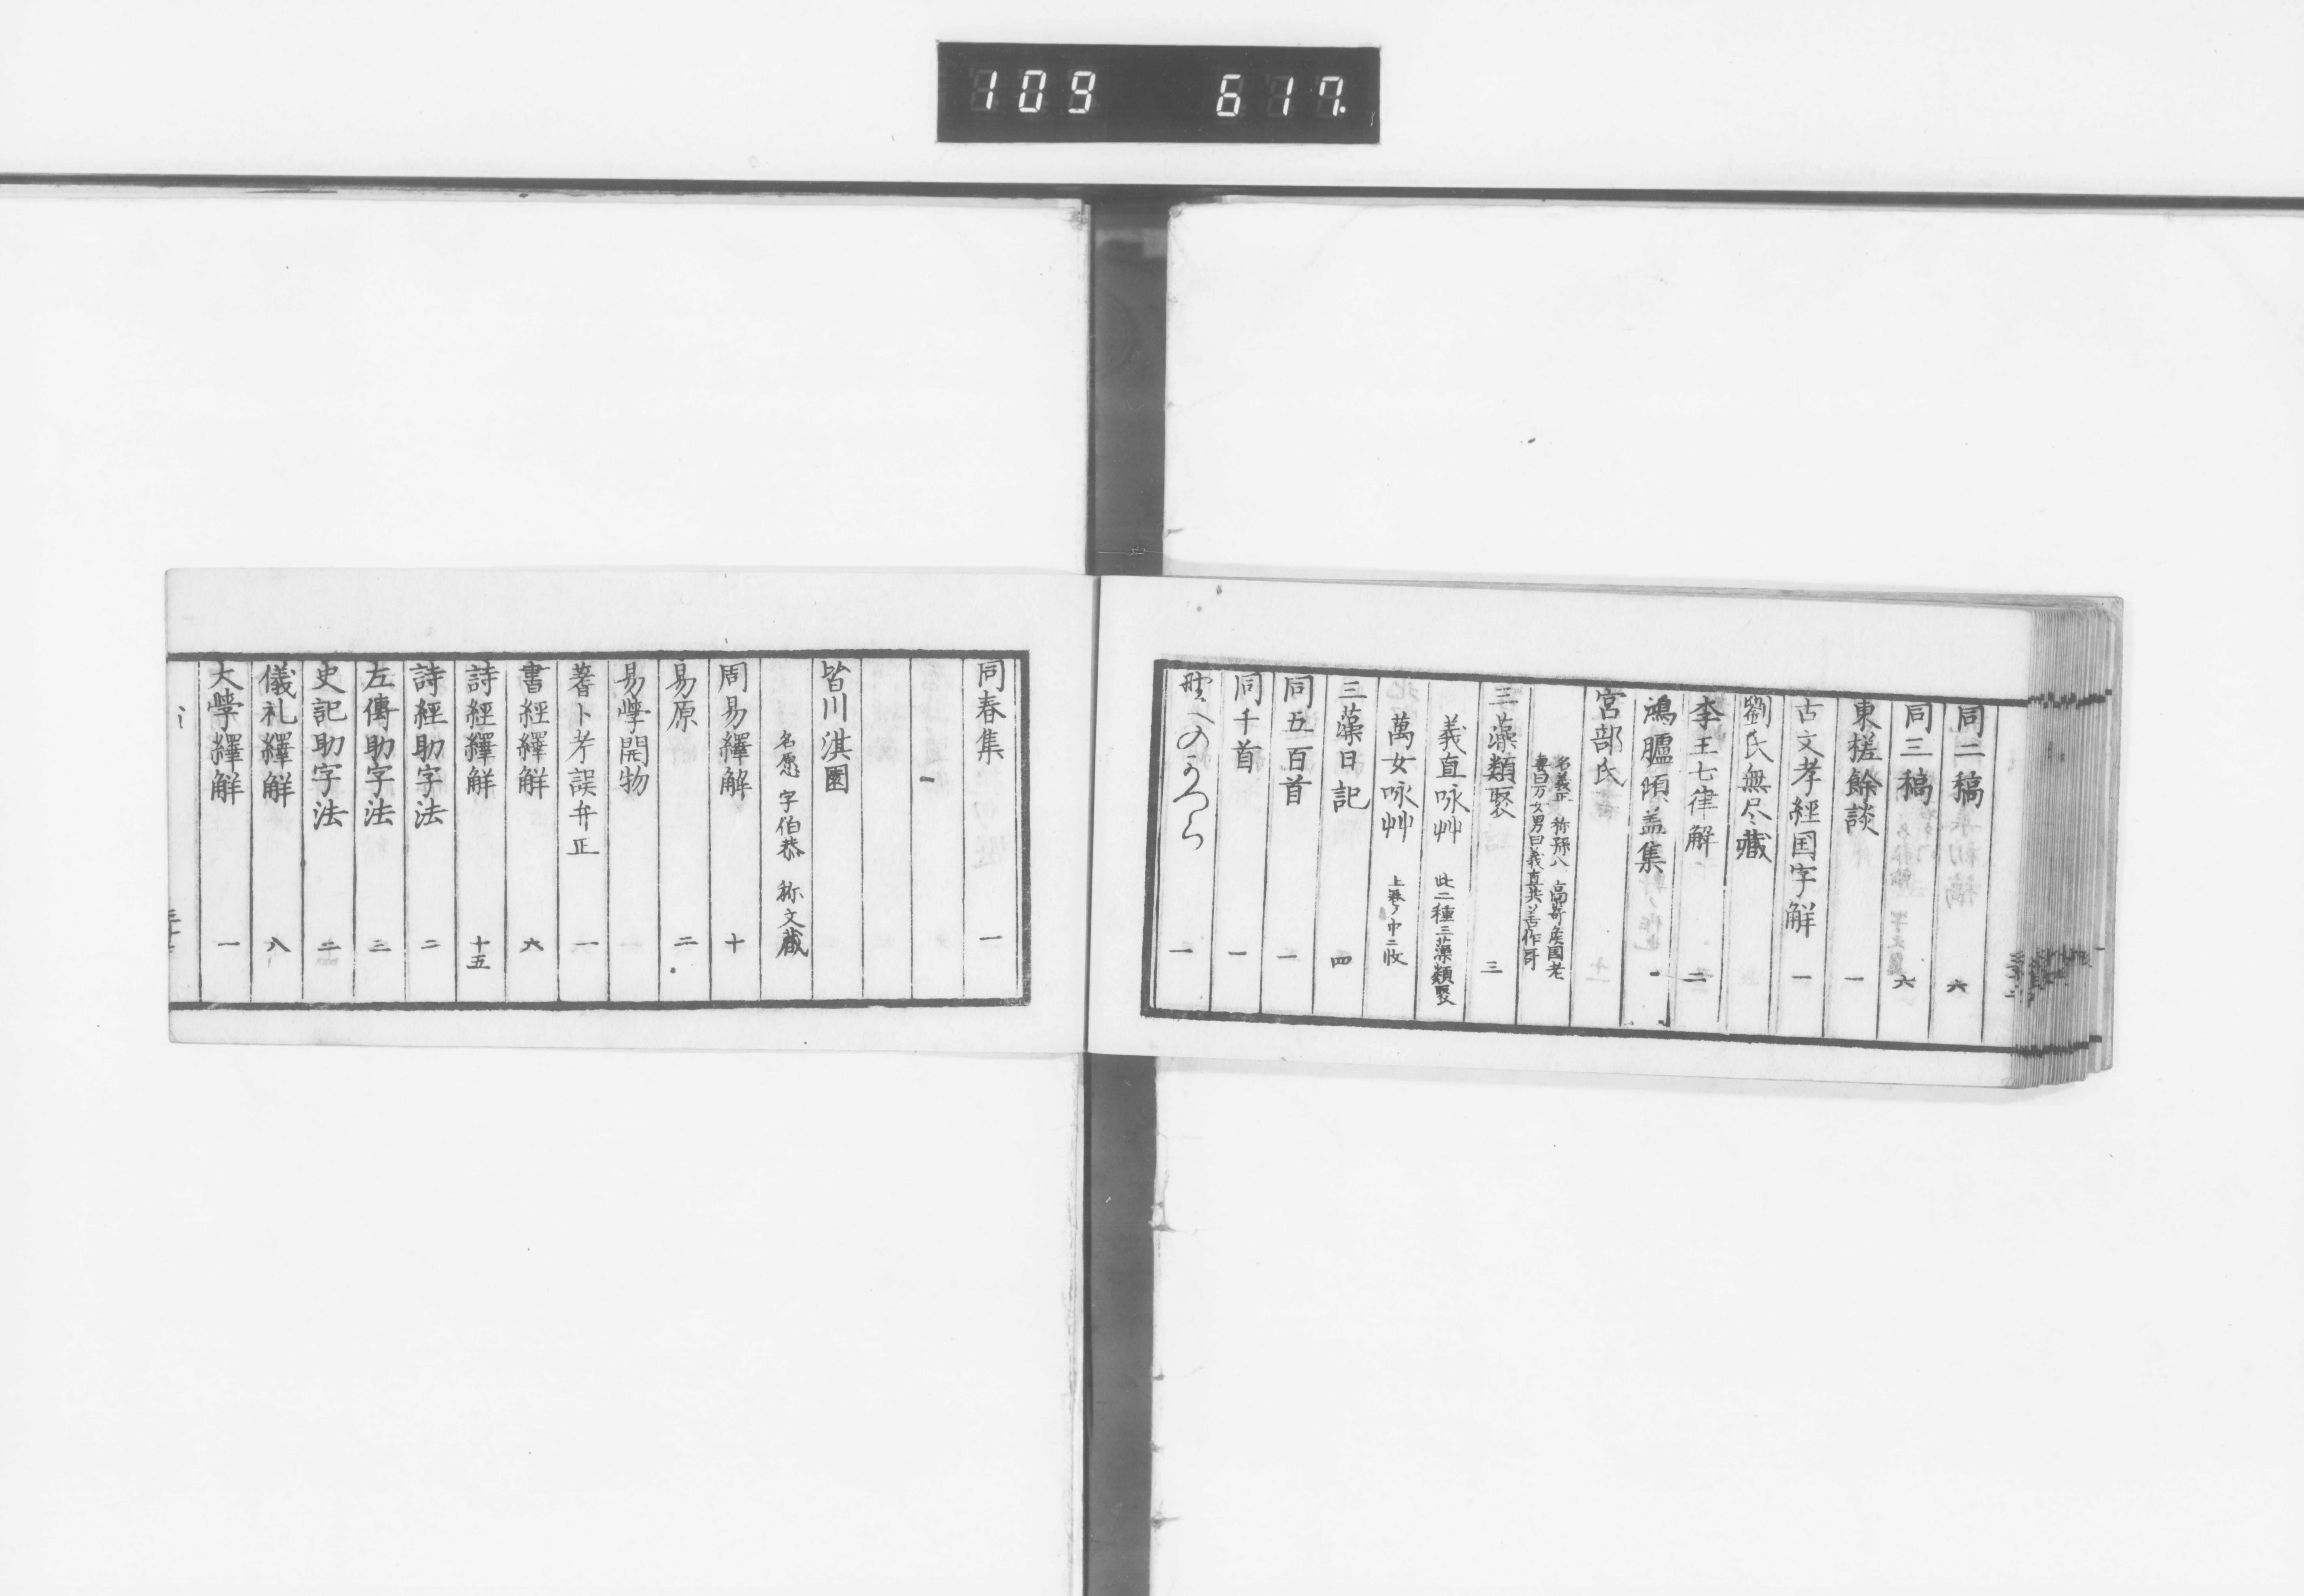 109 617
同二稿 六
同三稿 六
東槎餘談 一
古文孝經国字解 一
劉氏無尽藏
李王七律解 二
鴻臚傾盖集 一
宮部氏
名義正 称孫八 高崎矦国老
妻曰万女男曰義直共善作哥
三藻類聚 三
義直咏艸 此二種三藻類聚
萬女咏艸 上巻ノ中ニ收
三藻日記 四
同五百首 一
同千首 一
一
同春集 一
皆川淇園
名愿 字伯恭 称文蔵
周易繹解 十
易原 二
易學開物
蓍卜考誤弁正 一
書經繹解 六
詩經繹解 十五
詩經助字法 二
左傳助字法 三
史記助字法 二
儀礼繹解 八
大學繹解 一